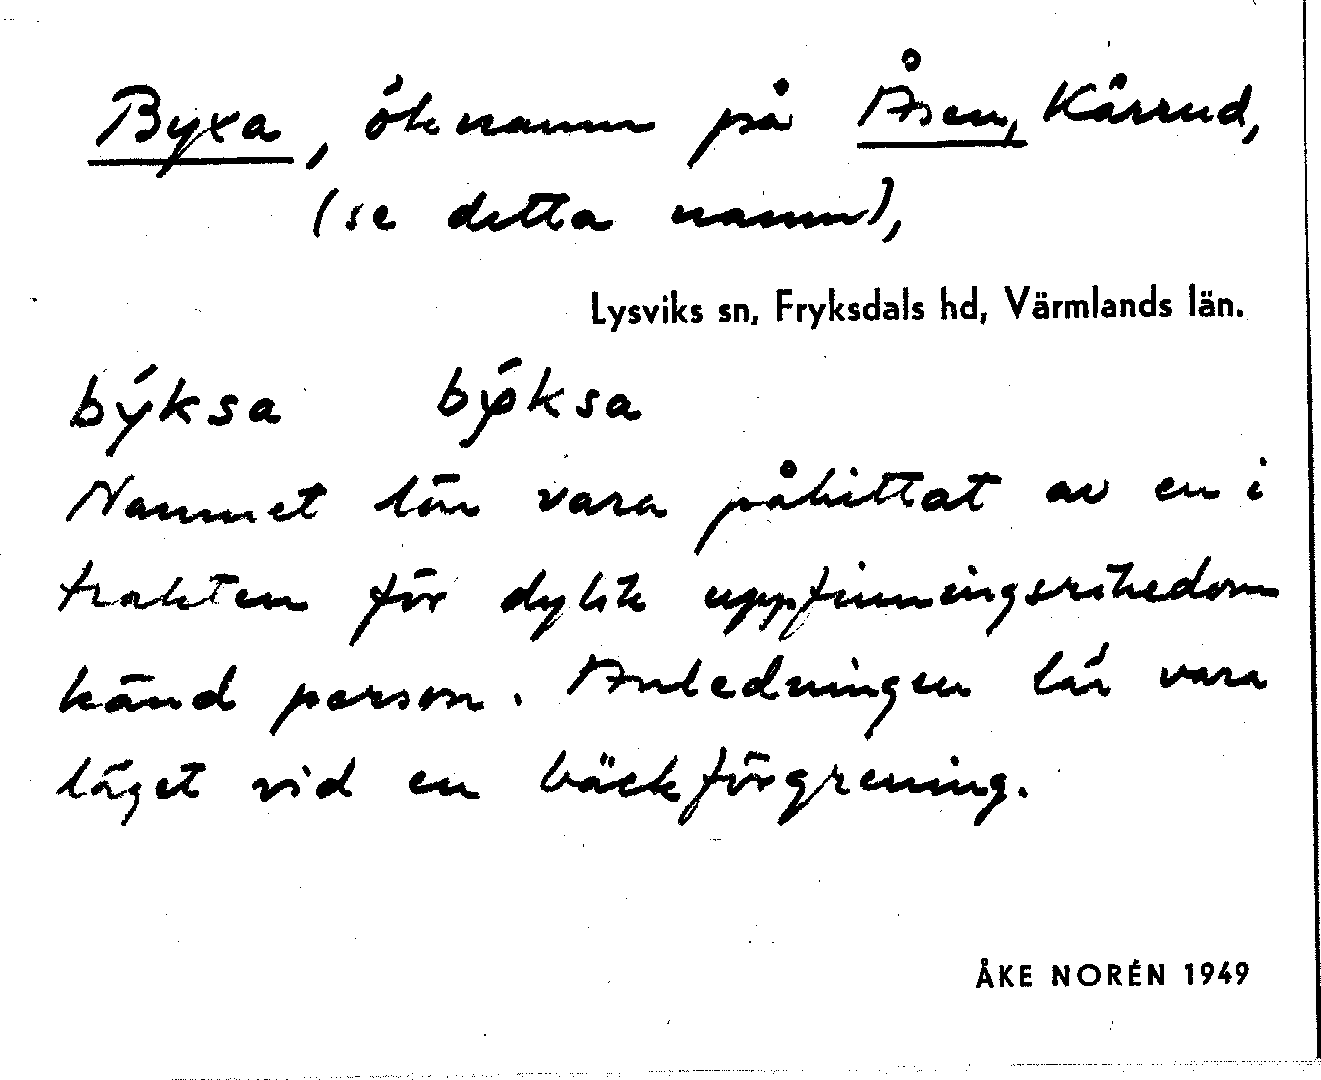 Byxa, öknamn på Åsen, Kårrud,
(se detta namn),
Lysviks sn, Fryksdals hd, Värmlands län.
býksa býksa
Namnet lär vara påhittat av en i
trakten för dylik uppfinningsrikedom
känd person. Anledningen lär vara
läget vid en bäckförgrening.
ÅKE NORÉN 1949